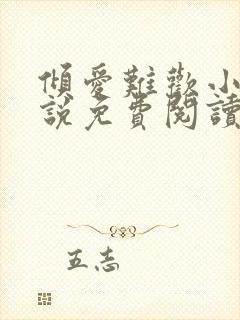 傾愛難歡小
說免費閱讀
五志